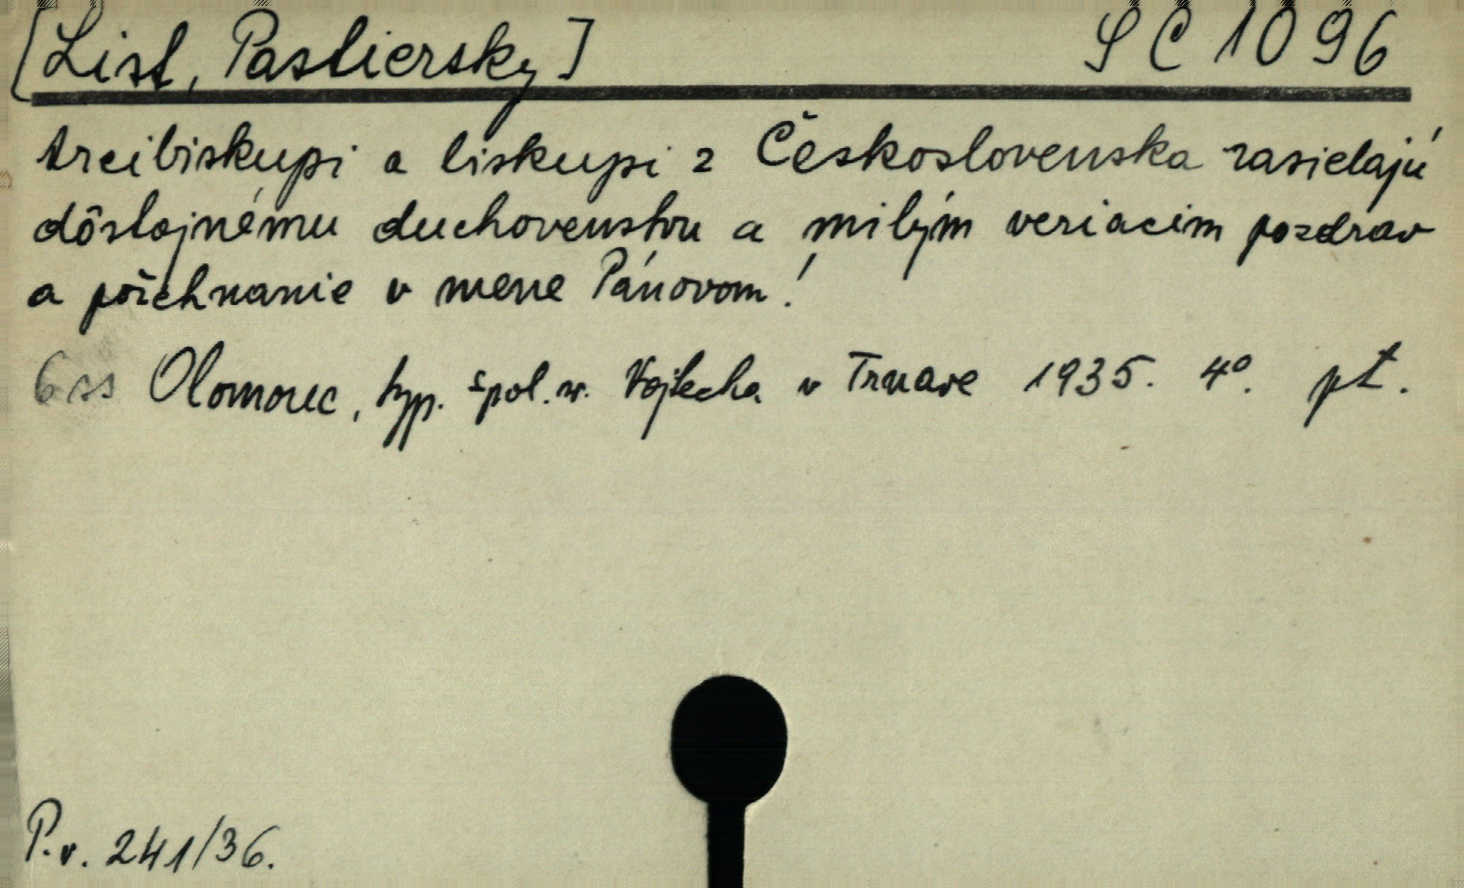 [List, Pastiersky] SC 1096
Arcibiskupi a biskupi z Československa zasielajú
dôstojnému duchovenstvu a milým veriacim pozdrav
a požehnanie v mene Pánovom!
6 ss Olomouc, typ. Spol. sv. Vojtecha v Trnave 1935. 4º. pt.
P.v. 241/36.